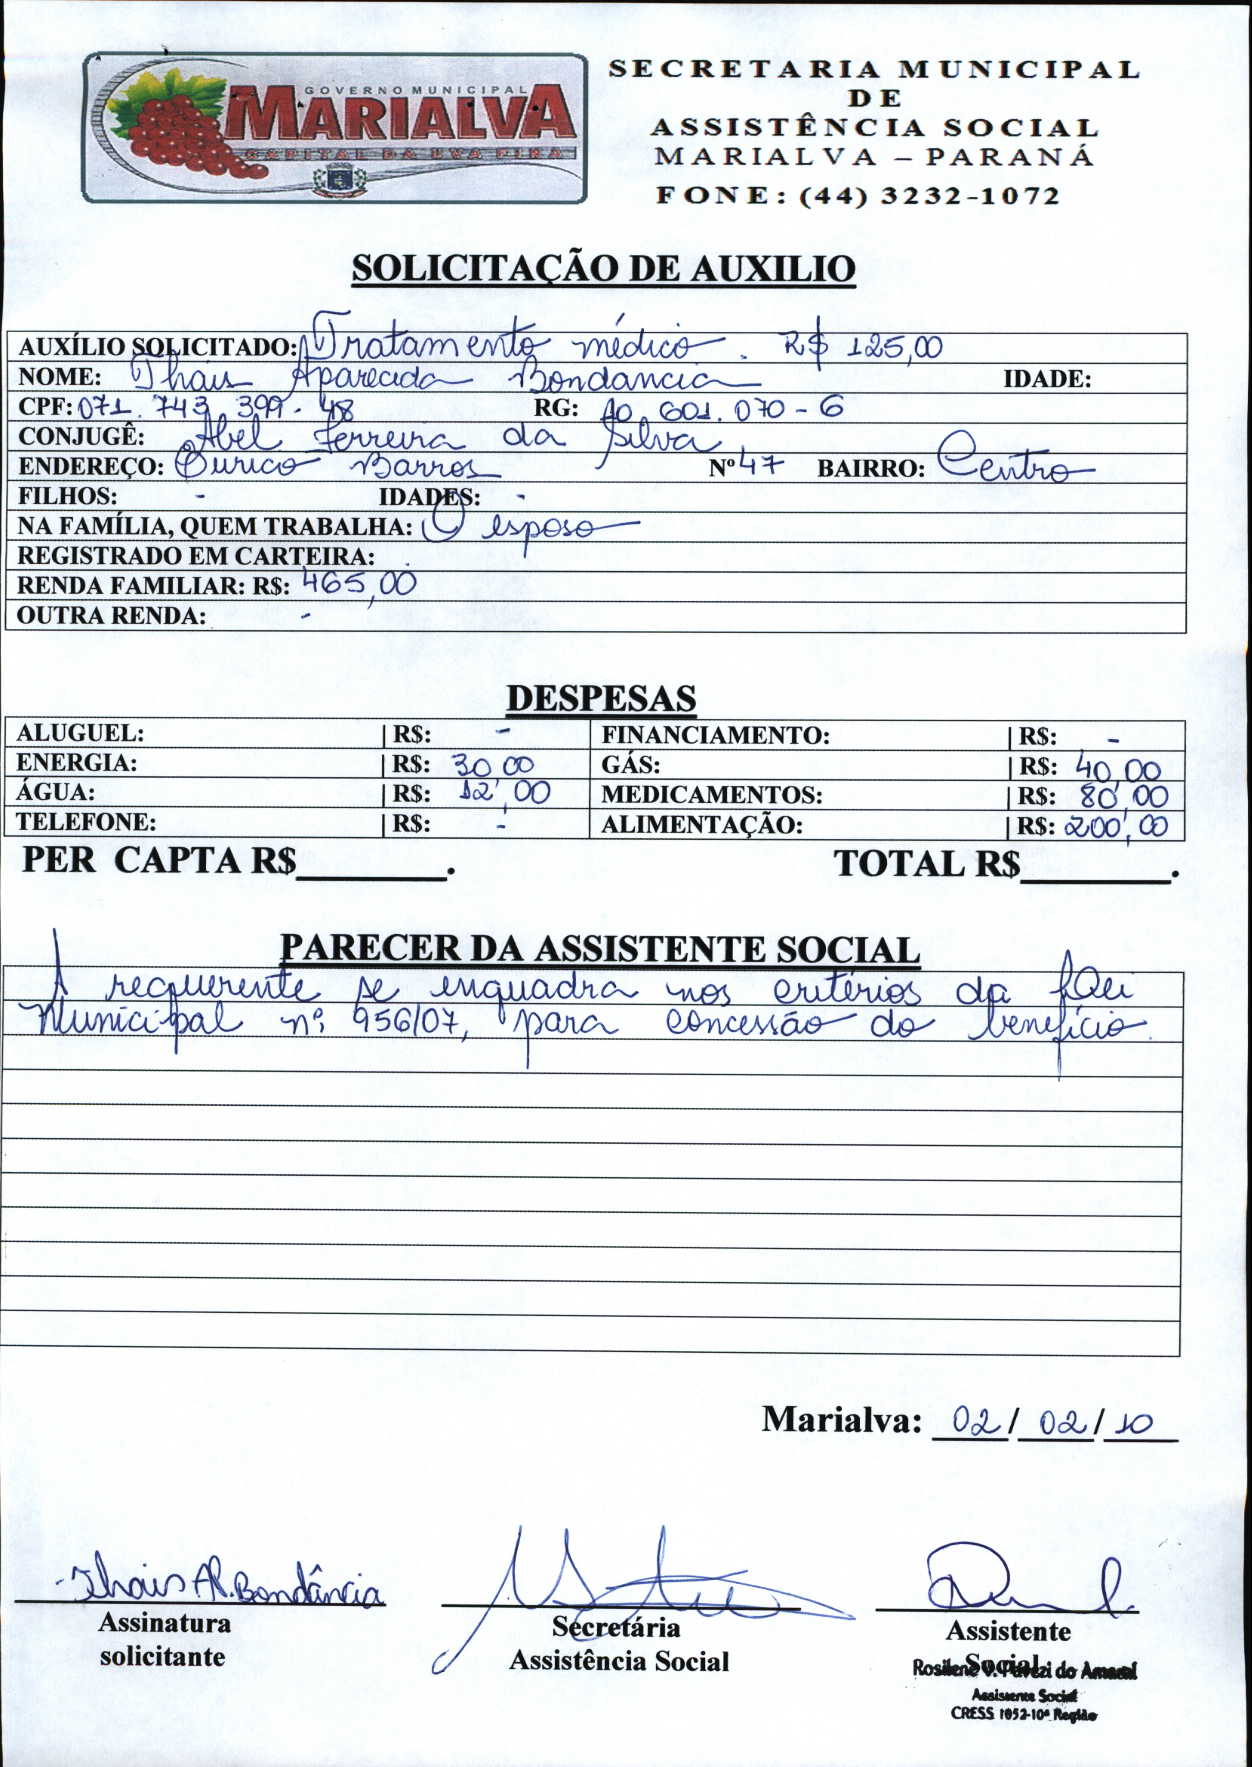 GOVERNO MUNICIPAL
MARIALVA
CAPITAL DA UVA FINA
SECRETARIA MUNICIPAL
DE
ASSISTÊNCIA SOCIAL
MARIALVA – PARANÁ
FONE: (44) 3232-1072
SOLICITAÇÃO DE AUXILIO
AUXÍLIO SOLICITADO: Tratamento médico. R$ 125,00
NOME: Thais Aparecida Bondancia IDADE:
CPF: 071.743.399-48 RG: 10.601.070-6
CONJUGÊ: Abel Ferreira da Silva
ENDEREÇO: Eurico Barros Nº 47 BAIRRO: Centro
FILHOS: - IDADES: -
NA FAMÍLIA, QUEM TRABALHA: O esposo
REGISTRADO EM CARTEIRA:
RENDA FAMILIAR: R$: 465,00
OUTRA RENDA: -
DESPESAS
ALUGUEL: | R$: - FINANCIAMENTO: | R$: -
ENERGIA: | R$: 30,00 GÁS: | R$: 40,00
ÁGUA: | R$: 12,00 MEDICAMENTOS: | R$: 80,00
TELEFONE: | R$: - ALIMENTAÇÃO: | R$: 200,00
PER CAPTA R$________. TOTAL R$________.
PARECER DA ASSISTENTE SOCIAL
A requerente se enquadra nos critérios da Lei
Municipal nº 956/07, para concessão do benefício.
Marialva: 02/02/10
Thais Ap. Bondância
Assinatura Secretária Assistente
solicitante Assistência Social Social
Rosilene V. Pavezi do Amaral
Assistente Social
CRESS 1052-10ª Região